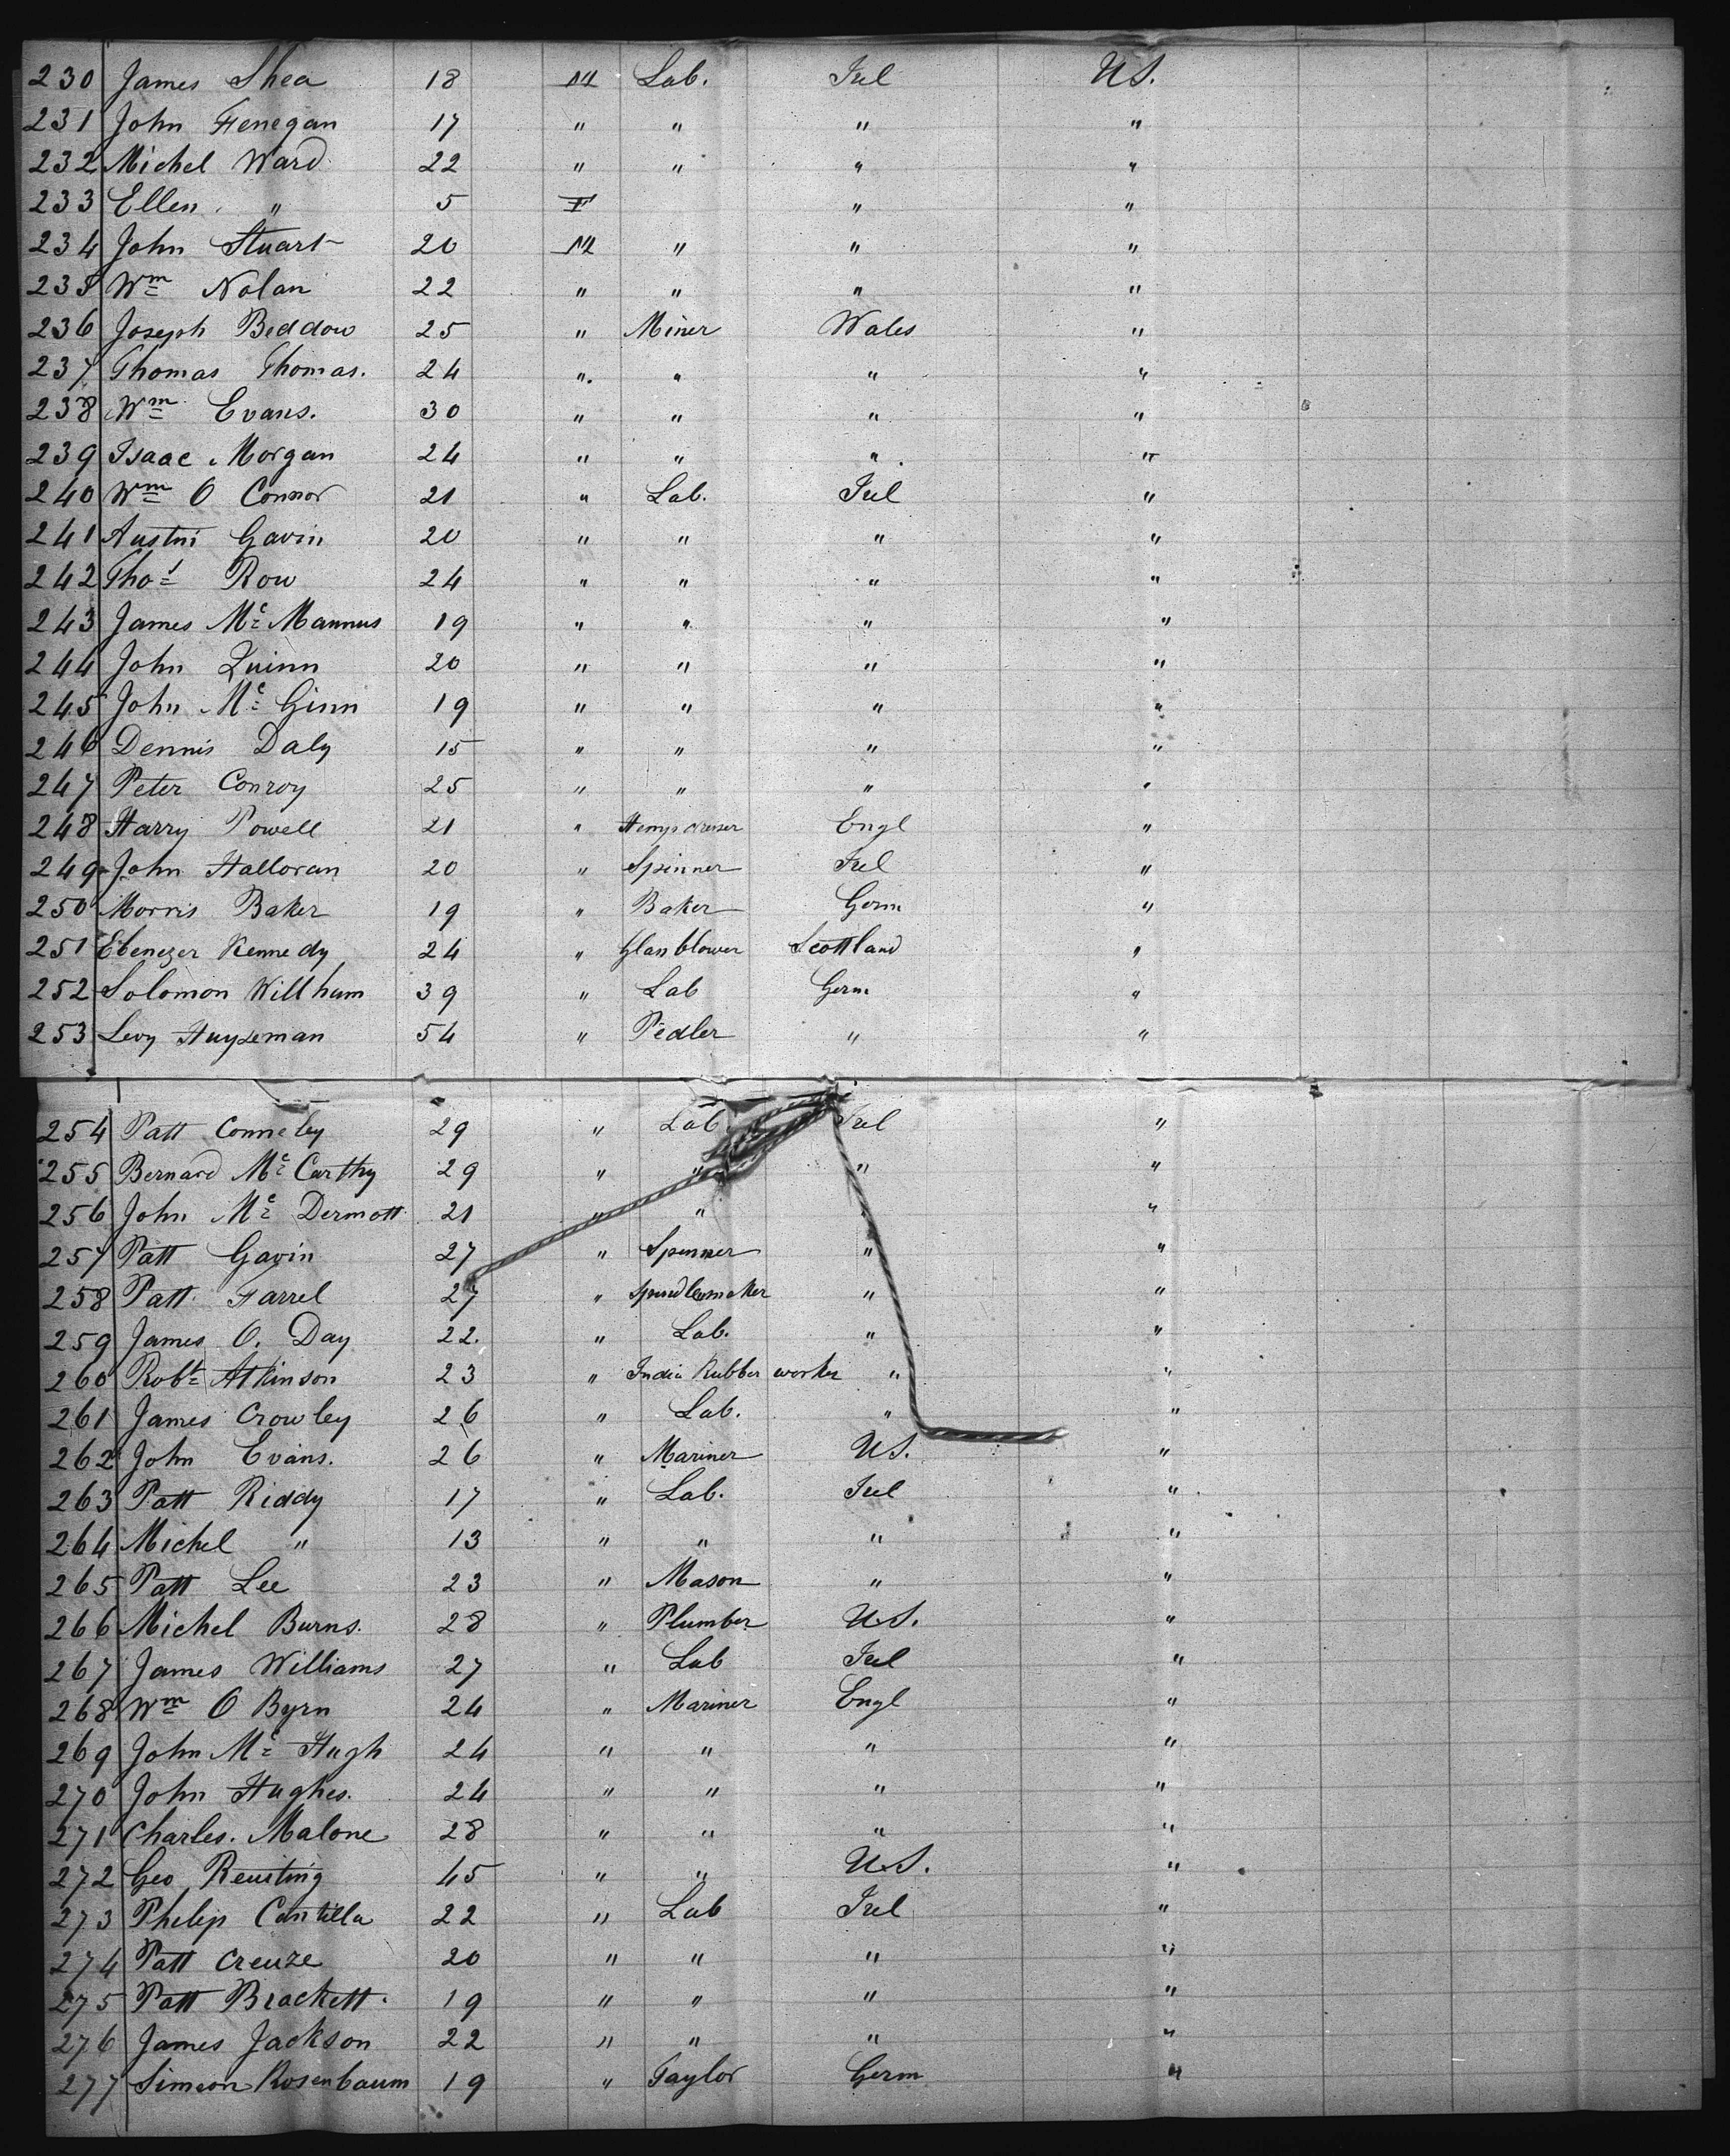 230 James Shea 18 M Lab. Irel U.S.
231 John Fenegan 17 " " " "
232 Michel Ward 22 " " " "
233 Ellen " 5 F " "
234 John Stuart 20 M " " "
235 Wm Nolan 22 " " " "
236 Joseph Beddow 25 " Miner Wales "
237 Thomas Thomas. 24 " " " "
238 Wm Evans. 30 " " " "
239 Isaac Morgan 24 " " " "
240 Wm O Connor 21 " Lab. Irel "
241 Austin Gavin 20 " " " "
242 Thos Row 24 " " " "
243 James Mc Mannus 19 " " " "
244 John Quinn 20 " " " "
245 John Mc Ginn 19 " " " "
246 Dennis Daly 15 " " " "
247 Peter Conroy 25 " " " "
248 Harry Powell 21 " Hemp dresser Engl "
249 John Halloran 20 " Spinner Irel "
250 Morris Baker 19 " Baker Germ "
251 Ebenezer Kennedy 24 " Glassblower Scottland "
252 Solomon Willham 39 " Lab Germ "
253 Levy Huyseman 54 " Pedler " "
254 Patt Conneley 29 " Lab Irel "
255 Bernard Mc Carthy 29 " " " "
256 John Mc Dermott 21 " " " "
257 Patt Gavin 27 " Spinner " "
258 Patt Farrel 27 " Spindlemaker " "
259 James O. Day 22. " Lab. " "
260 Robt Atkinson 23 " India Rubber worker " "
261 James Crowley 26 " Lab. " "
262 John Evans. 26 " Mariner U.S. "
263 Patt Riddy 17 " Lab. Irel "
264 Michel " 13 " " " "
265 Patt Lee 23 " Mason " "
266 Michel Burns. 28 " Plumber U.S. "
267 James Williams 27 " Lab Irel "
268 Wm O Byrn 24 " Mariner Engl "
269 John Mc Hugh 24 " " " "
270 John Hughes. 24 " " " "
271 Charles. Malone 28 " " " "
272 Geo Reusting 45 " " U.S. "
273 Philip Cantilla 22 " Lab Irel "
274 Patt Creuze 20 " " " "
275 Patt Brackett 19 " " " "
276 James Jackson 22 " " " "
277 Simeon Rosenbaum 19 " Taylor Germ "